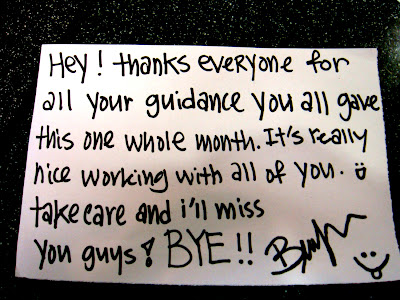 Hey! thanks everyone for
all your guidance you all gave
this one whole month. It's really
nice working with all of you. ü
take care and i'll miss
you guys! BYE!!